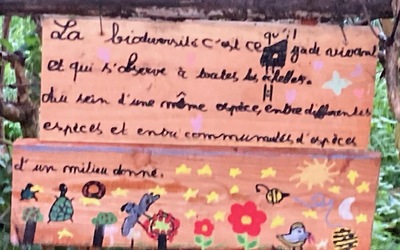 La biodiversité c'est ce qu'il
y a de vivant
et qui s'observe à toutes les échelles.
Au sein d'une même espèce, entre différentes
espèces et entre communautés d'espèces
d'un milieu donné.